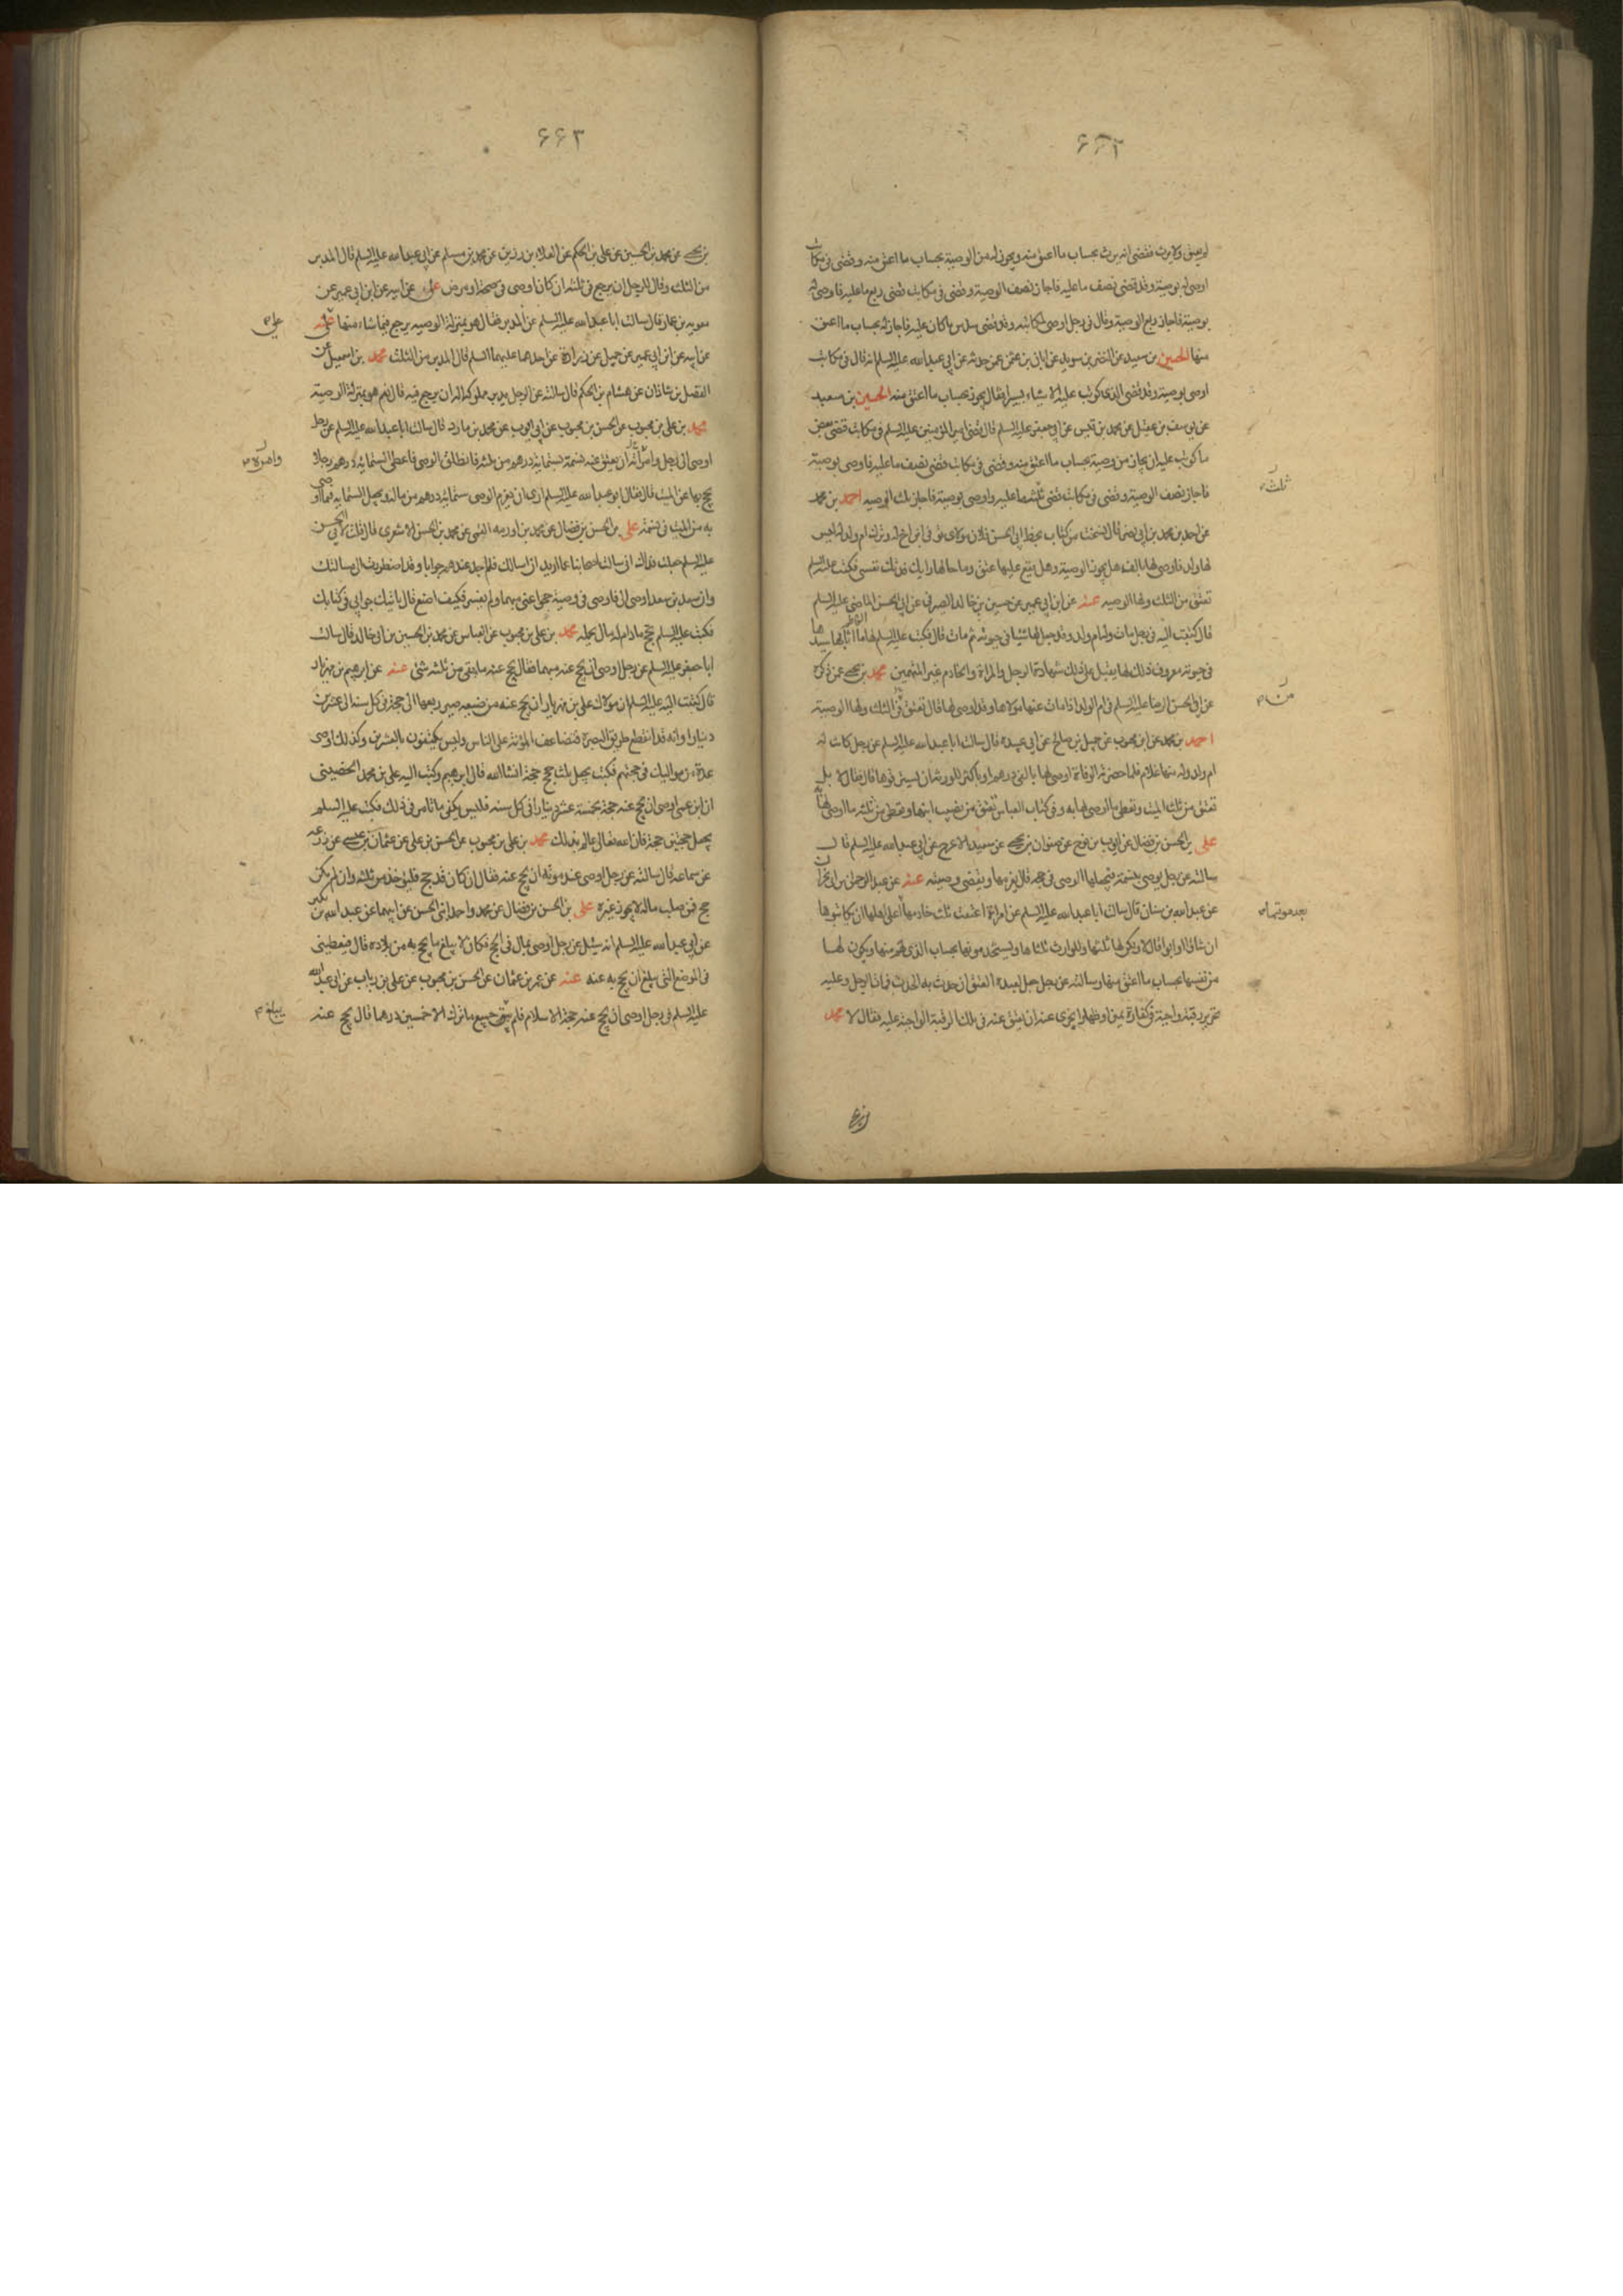 ۶۶۲
لم يعتق ولا يرث فقضى انه يرث بحساب ما اعتق منه ويجوز له من الوصية بحساب ما اعتق منه وقضى فى مكاتب
اوصى له بوصية وقد قضى نصف ما عليه فاجاز نصف الوصية وقضى فى مكاتب قضى ربع ما عليه فاوصى له
بوصية فاجاز ربع الوصية وقال فى رجل اوصى لمكاتبته وقد قضت سدس ما كان عليه فاجاز له بحساب ما اعتق
منها الحسين بن سعيد عن النضر بن سويد عن ابان بن عثمن عمن حدثه عن ابى عبد الله عليه السلم انه قال فى مكاتب
اوصى بوصية وقد قضى الذى كوتب عليه الا شيئا يسيرا فقال يجوز بحساب ما اعتق منه الحسين بن سعيد
عن يوسف بن عقيل عن محمد بن قيس عن ابى جعفر عليه السلم قال قضى امير المؤمنين عليه السلم فى مكاتب قضى بعض
ما كوتب عليه ان يجاز من وصيته بحساب ما اعتق منه وقضى فى مكاتب قضى نصف ما عليه فاوصى بوصية
فاجاز نصف الوصية وقضى فى مكاتب قضى ثلث ما عليه واوصى بوصية فاجاز ثلث الوصيه احمد بن محمد
عن احمد بن محمد بن ابى نصر قال نسخت من كتاب بخط ابى الحسن فلان مولاك توفى ابن اخ له وترك ام ولد له ليس
لها ولد فاوصى لها بالف هل يجوز الوصية وهل يقع عليها عتق وما حالها رايك فدتك نفسى فكتب عليه السلم
تعتق من الثلث ولها الوصيه عنه عن ابن ابى عمير عن حسين بن خالد الصيرفى عن ابى الحسن الماضى عليه السلم
قال كتبت اليه فى رجل مات وله ام ولد وقد جعل لها شيئا فى حيوته ثم مات قال فكتب عليه السلم لها ما اثابها به سيدها
فى حيوته معروف ذلك لها يقبل على ذلك شهادة الرجل والمراة والخادم غير المتهمين محمد بن يحيى عمن ذكره
عن ابى الحسن الرضا عليه السلم فى ام الولد اذا مات عنها مولاها وقد اوصى لها قال تعتق فى الثلث ولها الوصية
احمد بن محمد عن ابن محبوب عن جميل بن صالح عن ابى عبيده قال سالت ابا عبد الله عليه السلم عن رجل كانت له
ام ولد وله منها غلام فلما حضرته الوفاة اوصى لها بالفى درهم او باكثر للورثة ان يسترقوها قال فقال لا بل
تعتق من ثلث الميت وتعطى ما اوصى لها به وفى كتاب العباس تعتق من نصيب ابنها وتعطى من ثلثه ما اوصى لها به
على بن الحسن بن فضال عن ايوب بن نوح عن صفوان بن يحيى عن سعيد الاعرج عن ابى عبد الله عليه السلم قال
سالته عن رجل يوصى بنسمة فيجعلها الوصى فى حجه قال يغرمها ويقضى وصيته عنه عن عبد الرحمن بن ابى نجران
عن عبد الله بن سنان قال سالت ابا عبد الله عليه السلم عن امراة اعتقت ثلث خادمها اعلى اهلها ان يكاتبوها
ان شاؤا وابوا قال لا ولكن لها ثلثها وللوارث ثلثاها ويستخدمونها بحساب الذى لهم منها ويكون لها
من نفسها بحساب ما اعتق منها وسالته عن رجل جعل لعبده العتق ان حدث به الحدث فمات الرجل وعليه
تحرير رقبة واجبة فى كفارة يمين او ظهار ايجزى عنه ان يعتق عنه فى تلك الرقبة الواجبة عليه فقال لا محمد
ثلث
من
بعد موتها
۶۶۳
بن يحيى عن محمد بن الحسين عن على بن الحكم عن العلاء بن رزين عن محمد بن مسلم عن ابى عبد الله عليه السلم قال المدبر
من الثلث وقال للرجل ان يرجع فى ثلثه ان كان اوصى فى صحة او مرض على عن ابيه عن ابن ابى عمير عن
معويه بن عمار قال سالت ابا عبد الله عليه السلم عن المدبر فقال هو بمنزلة الوصيه يرجع فيما شاء منها عنه
عن ابيه عن ابن ابى عمير عن جميل عن زرارة عن احدهما عليهما السلم قال المدبر من الثلث محمد بن اسمعيل عن
الفضل بن شاذان عن هشام بن الحكم قال سالته عن الرجل يدبر مملوكه اله ان يرجع فيه قال نعم هو بمنزلة الوصية
محمد بن على بن محبوب عن الحسن بن محبوب عن ابى ايوب عن محمد بن مارد قال سالت ابا عبد الله عليه السلم عن رجل
اوصى الى رجل وامراته ان يعتق عنه نسمة بستمائة درهم من ثلثه فانطلق الوصى فاعطى الستمائة درهم رجلا
يحج بها عن الميت قال فقال ابو عبد الله عليه السلم ارى ان يغرم الوصى ستمائة درهم من ماله ويجعل الستمايه فيما اوصى
به من الميت فى نسمة على بن الحسن بن فضال عن محمد بن اورمه القمى عن محمد بن الحسن الاشعرى قال قلت لابى الحسن
عليه السلم جعلت فداك انى سالت اصحابنا عما اريد ان اسالك فلم اجد عندهم جوابا وقد اضطررت الى مسالتك
وان سعد بن سعد اوصى الى فاوصى فى وصيته حجوا عنى مبهما ولم يفسر فكيف اصنع قال ياتيك جوابى فى كتابك
فكتب عليه السلم يحج ما دام له مال يحمله محمد بن على بن محبوب عن العباس عن محمد بن الحسين بن ابى خالد قال سالت
ابا جعفر عليه السلم عن رجل اوصى ان يحج عنه مبهما فقال يحج عنه ما بقى من ثلثه شئ عنه عن ابرهيم بن مهزيار
قال كتبت اليه عليه السلم ان مولاك على بن مهزيار اوصى ان يحج عنه من ضيعه صير ربعها الى حجة فى كل سنة الى عشرين
دينارا وانه قد انقطع طريق البصرة فتضاعف المؤنة على الناس وليس يكتفون بالعشرين وكذلك اوصى
عدة من مواليك فى حجتهم فكتب يجعل ثلث حجج حجة انشاء الله قال ابرهيم وكتب اليه على بن محمد الحضينى
ان ابن عمى اوصى ان يحج عنه حجة بخمسة عشر دينارا فى كل سنه فليس يكفى ما تامر فى ذلك فكتب عليه السلم
يجعل حجتين حجة فان الله تعالى عالم بذلك محمد بن على بن محبوب عن الحسن بن على عن عثمان بن عيسى عن زرعه
عن سماعه قال سالته عن رجل اوصى عند موته ان يحج عنه فقال ان كان قد حج فليؤخذ من ثلثه وان لم يكن
حج فمن صلب ماله لا يجوز غيره على بن الحسن بن فضال عن محمد واحمد ابنى الحسن عن ابيهما عن عبد الله بن بكير
عن ابى عبد الله عليه السلم انه سئل عن رجل اوصى بمال فى الحج فكان لا يبلغ ما يحج به من بلاده قال فيعطى
فى الموضع الذى يبلغ ان يحج به عنه عنه عن عمر بن عثمان عن الحسن بن محبوب عن على بن رياب عن ابى عبد الله
عليه السلم فى رجل اوصى ان يحج عنه حجة الاسلام فلم يبلغ جميع ما ترك الا خمسين درهما قال يحج عنه
على
وامرة
يبلغ